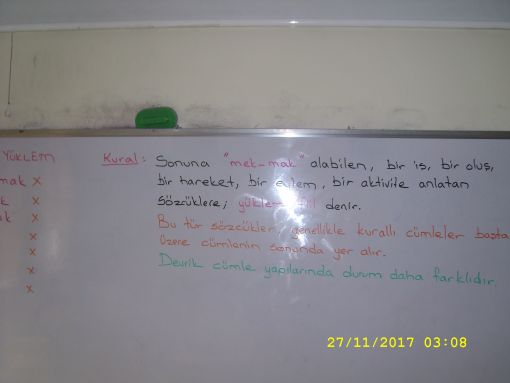 YÜKLEM
mak x
k x
ik x
x
x
x
x
Kural: Sonuna "mek-mak" alabilen, bir iş, bir oluş,
bir hareket, bir eylem, bir aktivite anlatan
sözcüklere; yüklem denir.
Bu tür sözcükler, genellikle kurallı cümleler başta
üzere cümlenin sonunda yer alır.
Devrik cümle yapılarında durum daha farklıdır.
27/11/2017 03:08